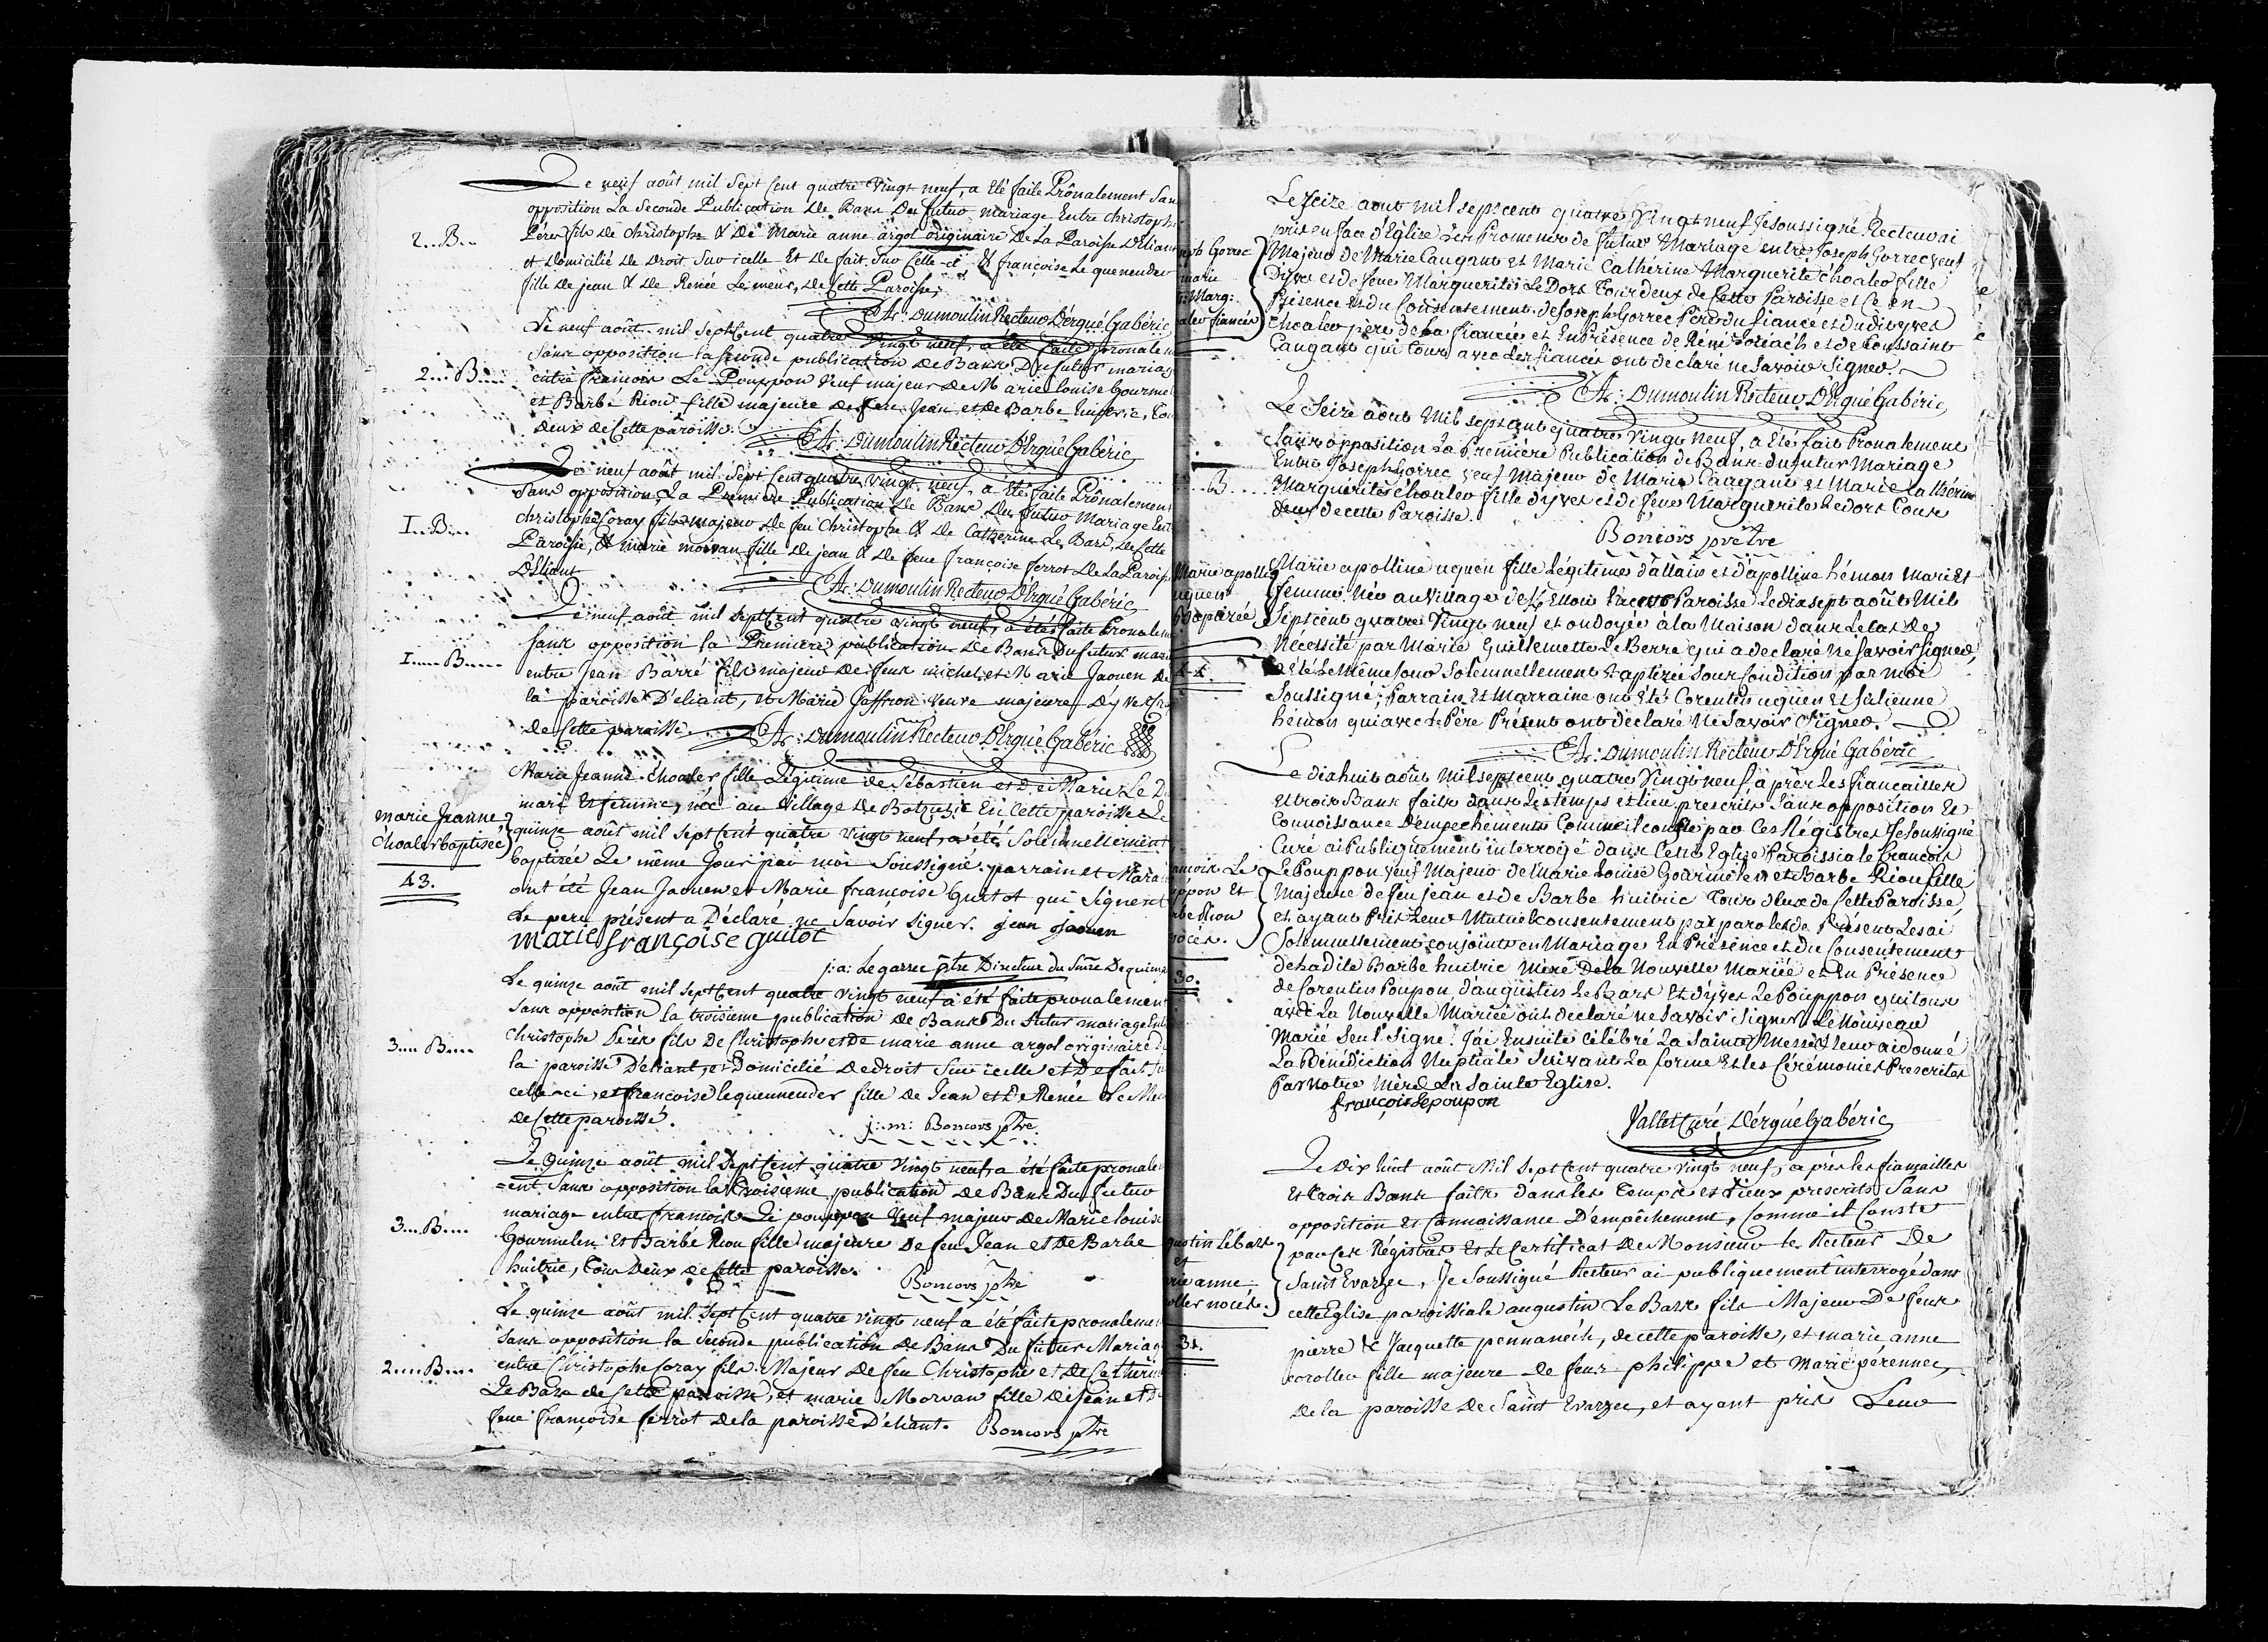 Le neuf août mil Sept Cent quatre Vingt neuf, a Eté faite Prônalement San
opposition La Seconde Publication De Bans Du futur mariage Entre christoph
2...B... Pérès fils De christophe & De Marie anne argol originaire De La Paroisse D'Eliant
et Domicilié De Droit Sur icelle Et De fait Sur Celle-ci & françoise Le quenender
fille De jean & De Renée Le meur, De Cette Paroisse,
At: Dumoulin Recteur D'Ergué Gabéric
Le neuf août mil Sept Cent quatre Vingt neuf, a été faite pronalem
Sans opposition la seconde publication De Bans Du futur mariag
2...B.... entre françois Le Pouppon Veuf majeur De Marie Louise Gourme
et Barbe Riou fille majeure De feu Jean et De Barbe huitric, Tou
Deux De Cette paroisse.
At: Dumoulin Recteur D'Ergué Gabéric
Le neuf août mil Sept Cent quatre Vingt neuf, a Eté faite Prônalement
Sans opposition La Première Publication De Bans Du futur Mariage Ent
I...B.... christophe Coray fils majeur De feu Christophe & De Catherine Le Bars, De Cette
Paroisse, & marie morvan fille De jean & De feue françoise ferrot De La Parois
D'Eliant
At: Dumoulin Recteur D'Ergué Gabéric
Le neuf août mil Sept Cent quatre vingt neuf, a été faite Pronalem
Sans opposition la Première publication De Bans Du futur mari
I.....B..... entre Jean Barré fils majeur De feux michel et Marie Jaouen De
la paroisse D'éliant, et Marie Gaffron veuve majeure D'yves
De Cette paroisse. At: Dumoulin Recteur D'Ergué Gabéric
Marie Jeanne Choaler fille Légitime de Sébastien et De Marie Le D
marie Jeanne mari et femme, née au village De En Cette paroisse Le
Choaler baptisée quinze août mil Sept Cent quatre vingt neuf, a été Solemnellement
baptisée Le même Jour par moi Soussigné: parrain et Mara
43. ont été Jean Jaouen et Marie françoise Guitot qui Signent
Le pere présent a Déclaré ne Savoir signer. jean jaouen
marie françoise guitot
j: a: Legarrec ptre Directeur du Smre De quimp
Le quinze août mil Sept Cent quatre vingt neuf a été faite pronalement
Sans opposition la troisieme publication De Bans Du futur mariage Ent
3.... B.... Christophe Pérès fils De Christophe et De marie anne argol originaire D
la paroisse D'éliant, et Domicilié De droit Sur icelle et De fait Su
celle-ci, et françoise Lequennender fille De Jean et De Renée Le Meu
De Cette paroisse. j: m: Bomors ptre
Le Quinze août mil Sept Cent quatre vingt neuf, a été faite pronalem
-ent Sans opposition la troisième publication De Bans Du futur
mariage entre françois Le pouppon Veuf majeur De Marie louise
3...B.... Gourmelen Et Barbe Riou fille majeure De feu Jean et De Barbe
huitric, Tous Deux De Cette paroisse. Bomors ptre
Le quinze août mil Sept Cent quatre vingt neuf a été faite pronalemen
Sans opposition la Seconde publication De Bans Du futur Mariag
2.....B.... entre Christophe Coray fils Majeur De feu Christophe et De Catherin
Le Bars de Cette paroisse, et marie Morvan fille De Jean et D
feue françoise ferrot De la paroisse D'éliant. Bomors ptre
Le Seize aout mil sept cent quatre Vingt neuf Je Soussigné Recteur ai
pris en face d'Eglise Les Promesses de futur Mariage entre Joseph Gorrec veuf
eph Gorrec Majeur de Marie Caugant et Marie Cathérine Marguerite Choaler fille
marie D'yves et de feue Marguerite Le Dors Tous deux de Cette Paroisse et Ce en
Marg: Présence et du Consentement de Joseph Gorrec Père du fiancé et dudit yves
aler fiancés Choaler père de la fiancée et En Présence de René et de Toussaint
Caugant qui Tous avec Les fiancés ont déclaré ne Savoir Signer.
At: Dumoulin Recteur D'Ergué Gabéric
Le Seize août Mil sept cent quatre Vingt Neuf, a Eté fait Pronalement
Sans opposition La Première Publication de Bans du futur Mariage
Entre Joseph Gorrec veuf Majeur de Marie Caugant et Marie Cathérine
..B.... Marguerite Choaler fille d'yves et de feue Marguerite Ledors Tous
deux de cette Paroisse.
Bomors prêtre
Marie apolli Marie apolline uguen fille Légitime d'allain et d'apolline hémon Mari Et
uguen femme Née au Village de En Cette Paroisse Le dix sept août Mil
Baptizée Sept cent quatre Vingt neuf et ondoyée à la Maison dans Le Cas De
Nécessité par Marie Guillemette Le Berre qui a declaré Ne Savoir Signer,
44. a été Le Même Jour Solemnellement Baptizée Sous Condition par Moi
Soussigné; Parrain Et Marraine ont Été Corentin uguen Et Julienne
hémon qui avec Le Père Présent ont déclaré Ne Savoir Signer.
At: Dumoulin Recteur D'Ergué Gabéric
Le dix huit août Mil sept cent quatre Vingt neuf, après Les fiancailles
Et trois Bans faits dans Les temps et lieu prescrits Sans opposition Et
Connoissance D'empechements Comme il conste par Ces Régistres Je Soussigné
Curé ai Publiquement interrogé dans Cette Eglise Paroissiale françois
ancois Le Le Pouppon veuf Majeur de Marie Louise Gourmelen et Barbe Riou fille
ppon Et Majeure de feu jean et de Barbe huitric Tous deux de Cette Paroisse,
rbe Riou et ayant Pris Leur Mutuel Consentement par paroles de Présent Les ai
nocés. Solemnellement conjoints en Mariage En Présence et du Consentement
de Ladite Barbe huitric Mère De la Nouvelle Mariée et En Présence
30. de Corentin Poupon d'augustin Le Bars Et d'yves Le Pouppon qui tous
avec La Nouvelle Mariée ont declaré ne Savoir Signer Le Nouveau
Marié Seul Signe. J'ai Ensuite Célébré La Sainte Messe & Leur ai donné
La Bénédiction Nuptiale Suivant La forme Et Les Cérémonies Prescrites
Par Notre Mère La Sainte Eglise.
françois lepoupon
Vallet Curé D'ergué Gabéric
Le Dix huit août Mil Sept Cent quatre Vingt neuf, après les fiançailles
Et trois Bans faits dans les Temps et Lieux prescrits Sans
opposition Et Connaissance D'empêchement, Comme il Conste
gustin Le Bars par Ces Régistres Et Le Certificat De Monsieur le Recteur De
et Saint Evarzec, Je Soussigné Recteur ai publiquement interrogé dans
rie anne cette Eglise paroissiale augustin Le Bars fils Majeur De feux
oller nocés. pierre & Jacquette pennanéch, de cette paroisse, et marie anne
31. coroller fille majeure de feus philippe et Marie pérennec,
De la paroisse De Saint Evarzec, et ayant pris Leur